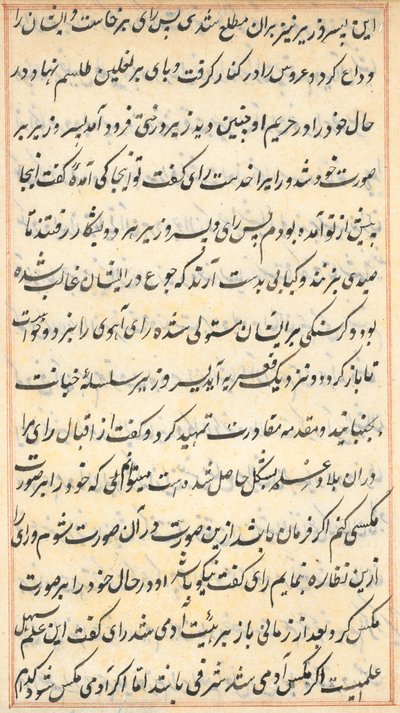 این پسر وزیر نیز بران مطلع شدی پس رای برخاست و ایشان را
وداع کرد و عروس را در کنار گرفت و پای بر نعلین طلسم نهاد در
حال خود را در حریم او جنین دید زیر درختی فرود آمد پسر وزیر بر
صورت خود شد و رایرا خدمت رای گفت تو اینجا کی آمدهٔ گفت اینجا
پیش از تو آمده بودم پس رای و پسر وزیر هر دو بشکار رفتند تا
صیدی بزنند و کبابی بدست آرند که جوع در ایشان غالب شده
بود و گرسنگی بر ایشان مستولی شده رای آهوی را بزد و خواست
تا باز کرد و نزدیک آید پسر وزیر سلسلهٔ خیانت
بجنبانید و مقدمه مقادرت تمهید کرد و گفت از اقبال رای مرا
دران بلاد علم مشکل حاصل شده است میتوانم که خود را بر صورت
مکسی کنم اگر فرمان باشد ازین صورت در آن صورت شوم و رای را
ازین نظاره نمایم رای گفت نیکو باشد او در حال خود را بر صورت
مکس کرد و بعد از زمانی باز بر هیئت آدمی شد رای گفت این علم سهل
علمیست اگر مکس آدمی شد شرفی یابد اما اگر آدمی مکس شود کدام